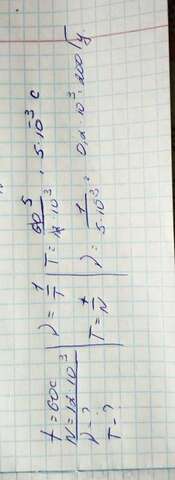 t=60c
N=12·10³
ν=?
T=?
ν = 1/T
T = t/N
T = 60/12·10³ = 5·10⁻³ c
ν = 1/5·10⁻³ = 0,2·10³ = 200 Гц